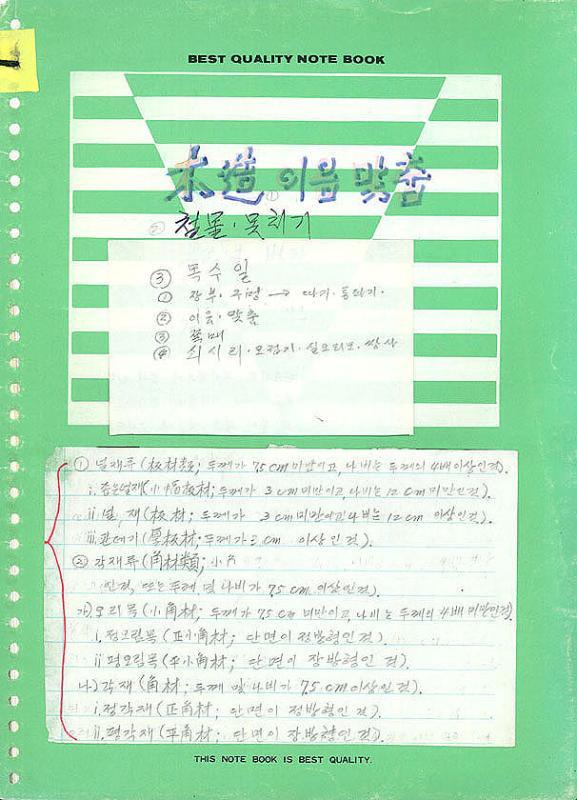 BEST QUALITY NOTE BOOK
木造 이음 맞춤
①
② 철물·못치기
③ 목수일
① 장부·구멍 → 따기·통따기·
② 이음·맞춤
③ 쪽매
④ 쇠시리·모접기·실모리모·쌍사
① 널재류(板材類; 두께가 7.5cm미만이고, 나비는 두께의 4배이상인것).
i. 좁은널재(小幅板材; 두께가 3cm미만이고, 나비는 12cm미만인것).
ii. 널재(板材; 두께가 3cm미만이고 나비는 12cm 이상인것).
iii. (厚板材; 두께가 3cm 이상인것).
② 각재류(角材類; 小
인것, 또는 두께 및 나비가 7.5cm이상인것).
가) 오리목(小角材; 두께가 7.5cm 미만이고, 나비는 두께의 4배 미만인것)
i. 정오림목(正小角材; 단면이 정방형인것).
ii 평오림목(平小角材; 단면이 장방형인것).
나) 각재(角材; 두께 및 나비가 7.5cm이상인것).
i. 정각재(正角材; 단면이 정방형인것).
ii. 평각재(平角材; 단면이 장방형인것).
THIS NOTE BOOK IS BEST QUALITY.